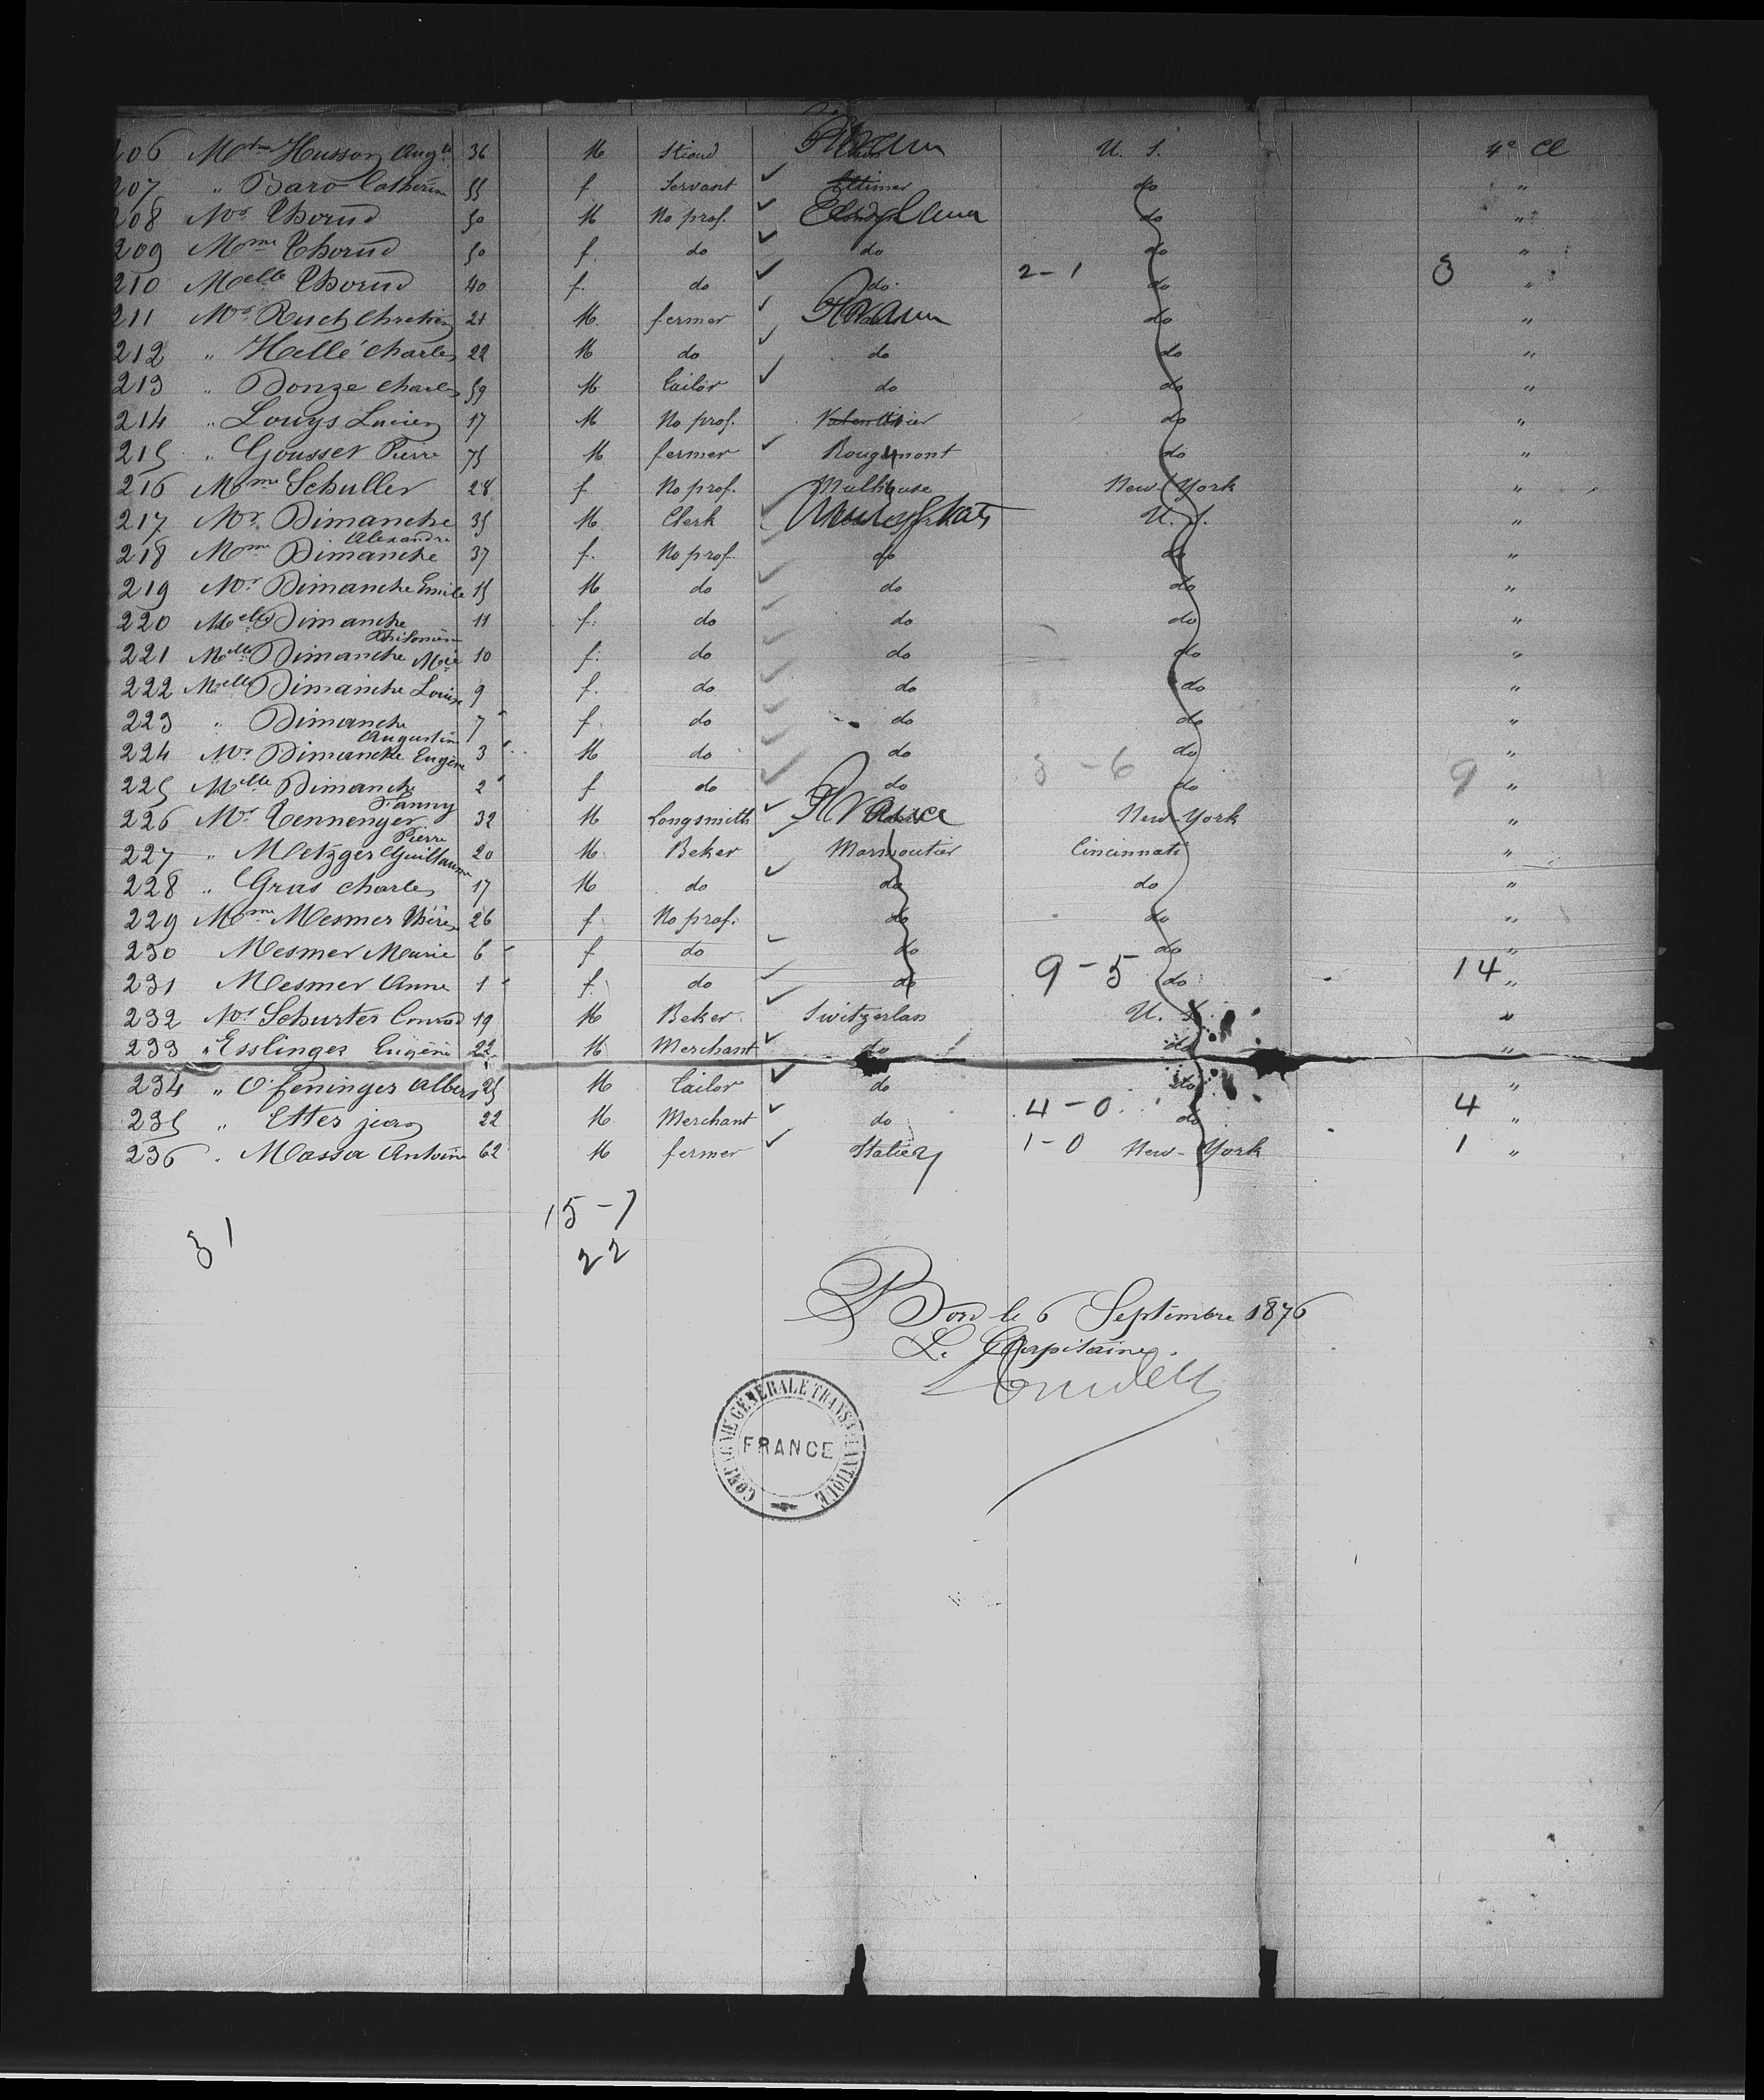 206 Husson Aug 36 M U. S. 4e Cl
207 " Baro Catherin 55 f Servant do "
208 Mr Thorud 50 M No prof. England do "
209 Mme Thorud 50 f. do do do "
210 Melle Thorud 40 f. do do 2-1 do 3 "
211 Mr Ruch Chretien 21 M fermer do "
212 " Hellé Charles 22 M do do do "
213 " Donze Charles 59 M Tailor do do "
214 " Louys Lucien 17 M No prof. do "
215 " Gousset Pierre 75 M fermer Rougemont do "
216 Mme Schuller 28 f No prof. Mulhouse New-York "
217 Mr Dimanche Alexandre 35 M Clerk U. S. "
218 Mme Dimanche 37 f. No prof do do "
219 Mr Dimanche Emile 15 M do do do "
220 Melle Dimanche Philomène 11 f. do do do "
221 Melle Dimanche Mrie 10 f. do do do "
222 Melle Dimainche Louise 9 f. do do do "
223 " Dimanche Augustin 7 f do do do "
224 Mr Dimanche Eugene 3 M do do do "
225 Melle Dimanche Fanny 2 f do do 3-6 do 9 "
226 Mr Tennenger Pierre 32 M Longsmith France New-York "
227 " Metzger Guillaume 20 M Beker Marmoutier Cincinnati "
228 " Gras Charles 17 M do do do "
229 Mme Mesmer Thérès 26 f No prof. do do "
230 Mesmer Marie 6 f do do do "
231 Mesmer Anne 1 f. do do 9-5 do 14 "
232 Mr Schurter Conrad 19 M Beker Switzerlan U. S. "
233 " Esslinger Eugène 22 M Merchant do do "
234 " Ofeninger Albert 25 M Tailor do do "
235 " Etter jean 22 M Merchant do 4-0 do 4 "
236 . Massa Antoine 62 M fermer Italien 1-0 New-York 1 "
15-7
31
22
Bord le 6 Septembre 1876
Le Capitaine.
COMPAGNIE GÉNÉRALE TRANSATLANTIQUE
FRANCE